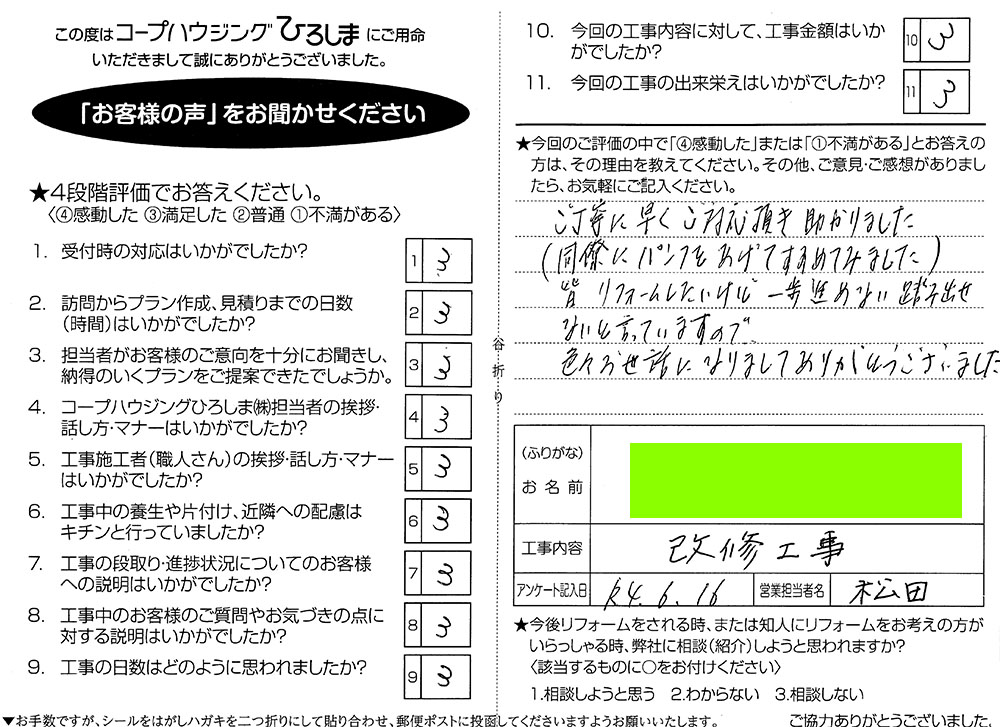 この度はコープハウジングひろしまにご用命
いただきまして誠にありがとうございました。
「お客様の声」をお聞かせください
★4段階評価でお答えください。
〈④感動した ③満足した ②普通 ①不満がある〉
1. 受付時の対応はいかがでしたか?
1 3
2. 訪問からプラン作成、見積りまでの日数
(時間)はいかがでしたか?
2 3
3. 担当者がお客様のご意向を十分にお聞きし、
納得のいくプランをご提案できたでしょうか。
3 3
4. コープハウジングひろしま㈱担当者の挨拶・
話し方・マナーはいかがでしたか?
4 3
5. 工事施工者(職人さん)の挨拶・話し方・マナー
はいかがでしたか?
5 3
6. 工事中の養生や片付け、近隣への配慮は
キチンと行っていましたか?
6 3
7. 工事の段取り・進捗状況についてのお客様
への説明はいかがでしたか?
7 3
8. 工事中のお客様のご質問やお気づきの点に
対する説明はいかがでしたか?
8 3
9. 工事の日数はどのように思われましたか?
9 3
谷折り
10. 今回の工事内容に対して、工事金額はいか
がでしたか?
10 3
11. 今回の工事の出来栄えはいかがでしたか?
11 3
★今回のご評価の中で「④感動した」または「①不満がある」とお答えの
方は、その理由を教えてください。その他、ご意見・ご感想がありまし
たら、お気軽にご記入ください。
ご丁寧に早くご対応頂き助かりました
(同僚にパンフをあげてすすめてみました)
皆リフォームしたいけど一歩進めない踏み出せ
ないと言っていますので
色々お世話になりましてありがとうございました
(ふりがな)
お名前
工事内容 改修工事
アンケート記入日 R4.6.16 営業担当者名 松田
★今後リフォームをされる時、または知人にリフォームをお考えの方が
いらっしゃる時、弊社に相談(紹介)しようと思われますか?
〈該当するものに○をお付けください〉
1.相談しようと思う 2.わからない 3.相談しない
▼お手数ですが、シールをはがしハガキを二つ折りにして貼り合わせ、郵便ポストに投函してくださいますようお願いいたします。 ご協力ありがとうございました。